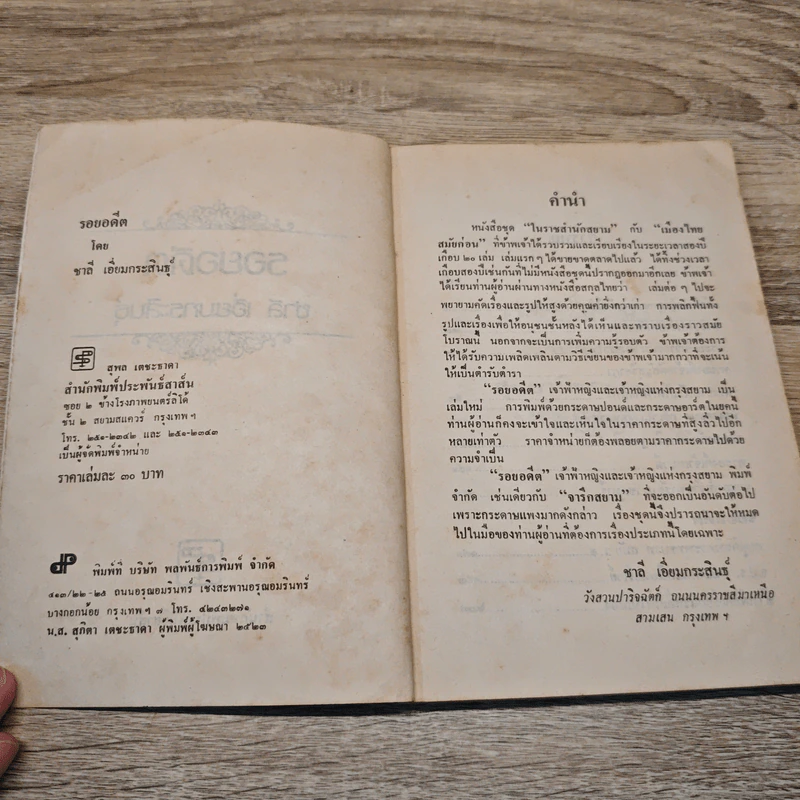 รอยอดีต
โดย
ชาลี เอี่ยมกระสินธุ์
สุพล เตชะธาดา
สำนักพิมพ์ประพันธ์สาส์น
ซอย ๒ ข้างโรงภาพยนตร์ลิโด้
ชั้น ๒ สยามสแควร์ กรุงเทพ ฯ
โทร. ๒๕๑-๒๓๔๒ และ ๒๕๑-๒๓๔๓
เป็นผู้จัดพิมพ์จำหน่าย
ราคาเล่มละ ๓๐ บาท
พิมพ์ที่ บริษัท พลพันธ์การพิมพ์ จำกัด
๔๑๓/๒๒-๒๕ ถนนอรุณอมรินทร์ เชิงสะพานอรุณอมรินทร์
บางกอกน้อย กรุงเทพ ฯ ๗ โทร. ๔๒๔๓๒๗๑
น.ส. สุภิตา เตชะธาดา ผู้พิมพ์ผู้โฆษณา ๒๕๒๓
คำนำ
หนังสือชุด “ในราชสำนักสยาม” กับ “เมืองไทย
สมัยก่อน” ที่ข้าพเจ้าได้รวบรวมและเรียบเรียงในระยะเวลาสองปี
เกือบ ๒๐ เล่ม เล่มแรก ๆ ได้ขายขาดตลาดไปแล้ว ได้ทิ้งช่วงเวลา
เกือบสองปีเช่นกันที่ไม่มีหนังสือชุดนี้ปรากฏออกมาอีกเลย ข้าพเจ้า
ได้เรียนท่านผู้อ่านผ่านทางหนังสือสกุลไทยว่า เล่มต่อ ๆ ไปจะ
พยายามคัดเรื่องและรูปให้สูงด้วยคุณค่ายิ่งกว่าเก่า การพลิกฟื้นทั้ง
รูปและเรื่องเพื่อให้อนุชนชั้นหลังได้เห็นและทราบเรื่องราวสมัย
โบราณนี้ นอกจากจะเป็นการเพิ่มความรู้รอบตัว ข้าพเจ้าต้องการ
ให้ได้รับความเพลิดเพลินตามวิธีเขียนของข้าพเจ้ามากกว่าที่จะเน้น
ให้เป็นตำรับตำรา
“รอยอดีต” เจ้าฟ้าหญิงและเจ้าหญิงแห่งกรุงสยาม เป็น
เล่มใหม่ การพิมพ์ด้วยกระดาษปอนด์และกระดาษอาร์ตในยุคนี้
ท่านผู้อ่านก็คงจะเข้าใจและเห็นใจในราคากระดาษที่สูงลิ่วไปอีก
หลายเท่าตัว ราคาจำหน่ายก็ต้องพลอยตามราคากระดาษไปด้วย
ความจำเป็น
“รอยอดีต” เจ้าฟ้าหญิงและเจ้าหญิงแห่งกรุงสยาม พิมพ์
จำกัด เช่นเดียวกับ “จารึกสยาม” ที่จะออกเป็นอันดับต่อไป
เพราะกระดาษแพงมากดังกล่าว เรื่องชุดนี้จึงปรารถนาจะให้หมด
ไปในมือของท่านผู้อ่านที่ต้องการเรื่องประเภทนี้โดยเฉพาะ
ชาลี เอี่ยมกระสินธุ์
วังสวนปาริจฉัตก์ ถนนนครราชสีมาเหนือ
สามเสน กรุงเทพ ฯ